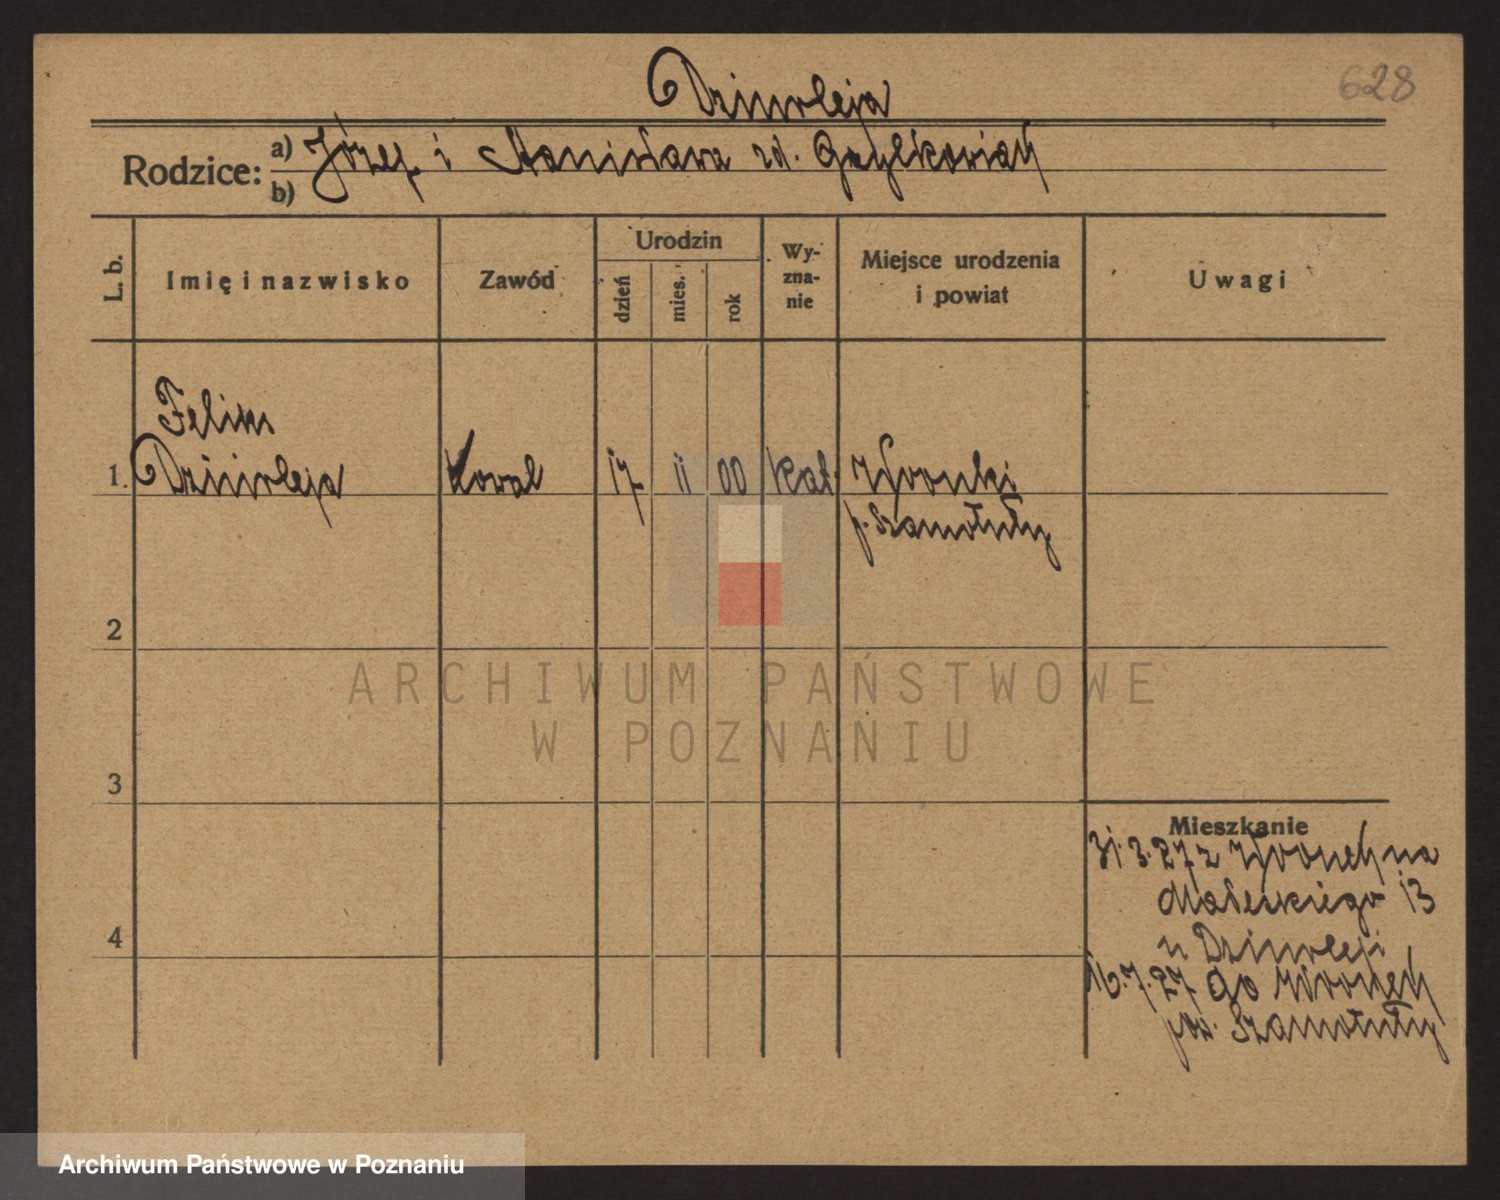 Dziurleja
628
Rodzice: a) Józef i Stanisława zd. Grzylkowiak
b)
L. b.
Imię i nazwisko
Zawód
Urodzin
dzień
mies.
rok
Wy-
zna-
nie
Miejsce urodzenia
i powiat
Uwagi
1. Felix
Dziurleja
Kowal
17
11
00
kat.
Wronki
p. Szamotuły
2
3
4
Mieszkanie
31.3.27 z Wronek na
Małeckiego 13
u Dziurleji
16.7.27 do Wronek
pow. Szamotuły
ARCHIWUM PAŃSTWOWE
W POZNANIU
Archiwum Państwowe w Poznaniu